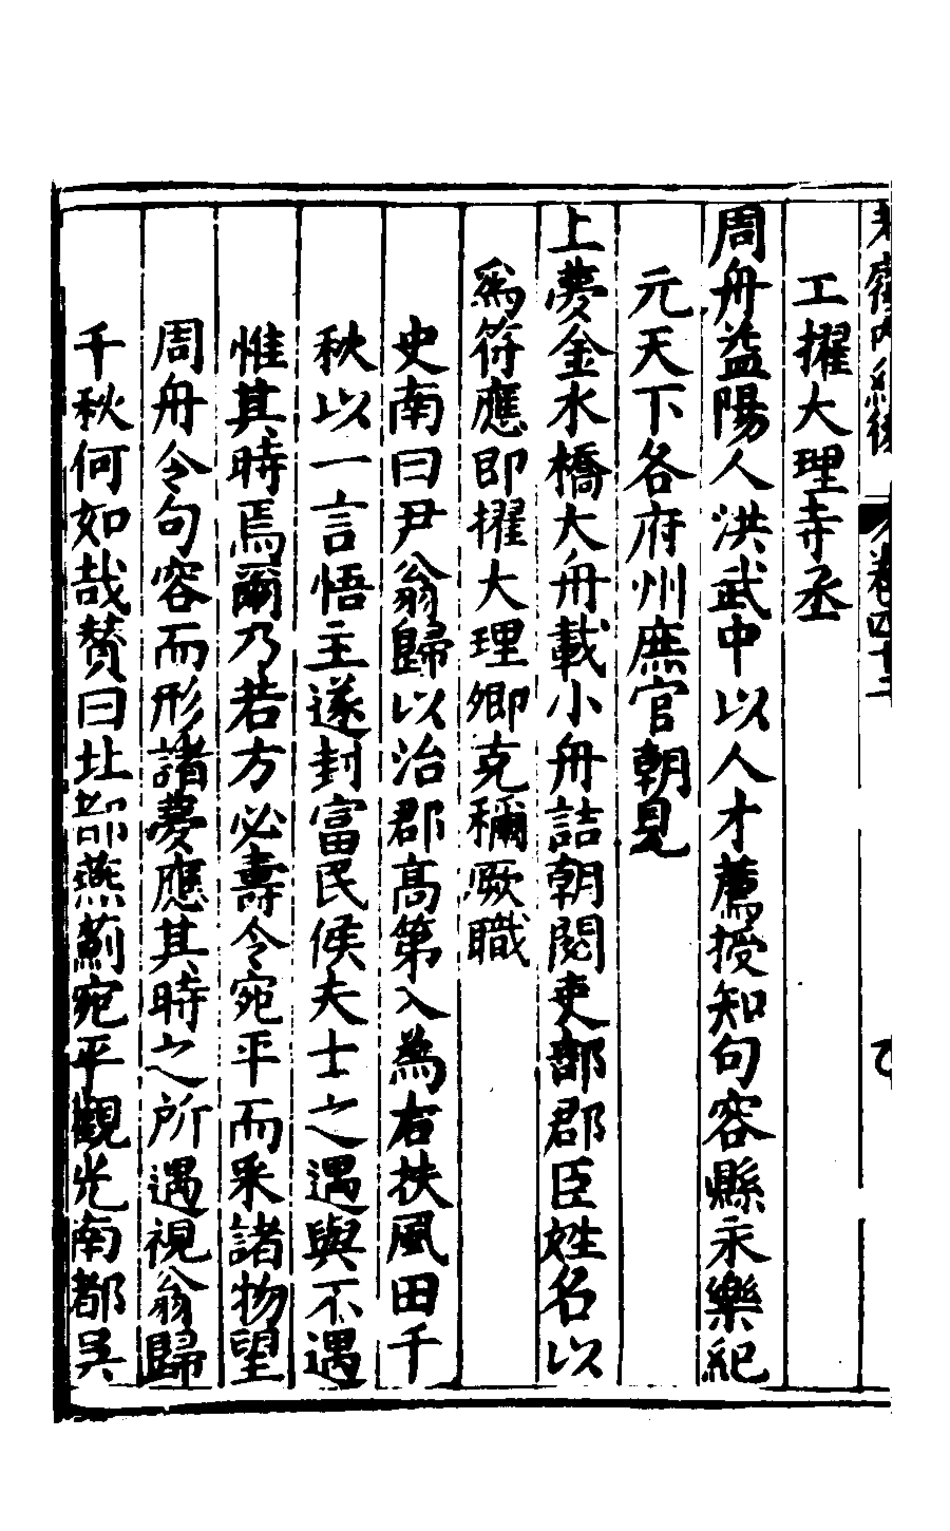 卷四十二
工擢大理寺丞
周舟益陽人洪武中以人才薦授知句容縣永樂紀
元天下各府州庶官朝見
上夢金水橋大舟載小舟詰朝閱吏部郡臣姓名以
爲符應即擢大理卿克稱厥職
史南曰尹翁歸以治郡高第入爲右扶風田千
秋以一言悟主遂封富民侯夫士之遇與不遇
惟其時焉爾乃若方必壽令宛平而釆諸物望
周舟令句容而形諸夢應其時之所遇視翁歸
千秋何如哉贊曰北部燕薊宛平觀光南都吳